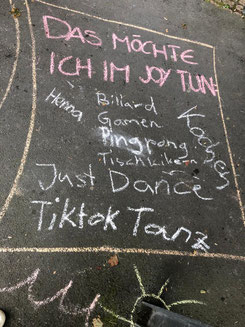 DAS MÖCHTE
ICH IM JOY TUN
Henna
Billard
Gamen
Pingpong
Tischkikern
Just Dance
Tiktok Tanz